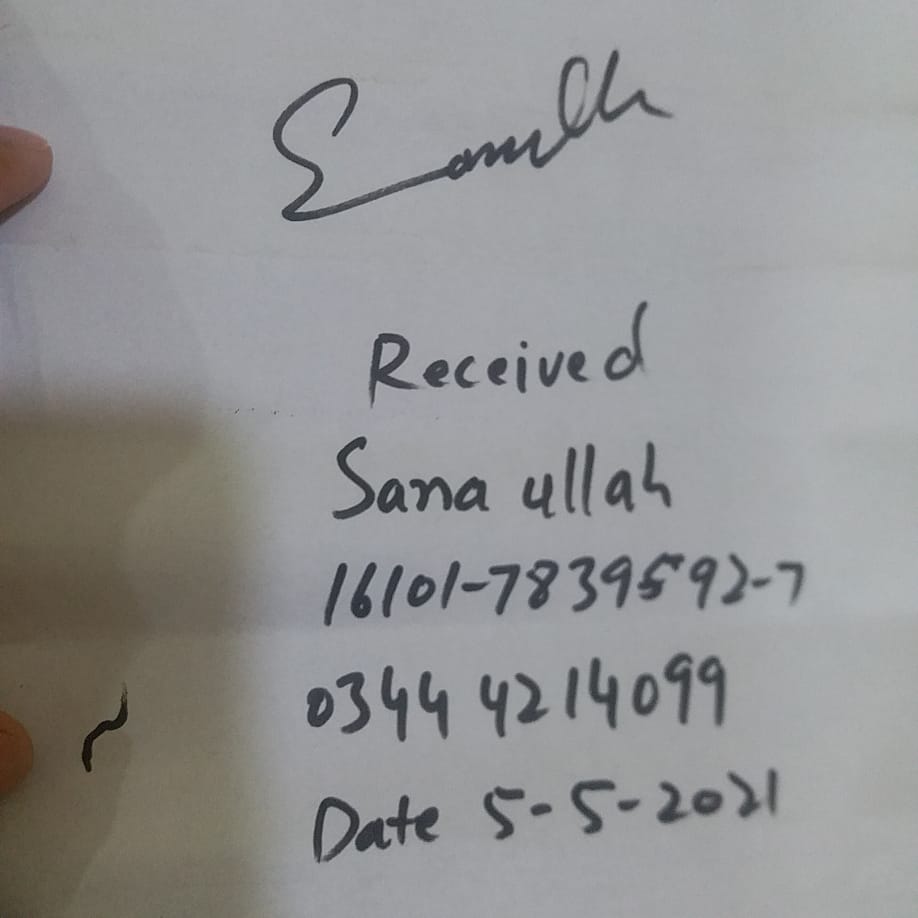 Received
Sana ullah
16101-7839592-7
0344 4214099
Date 5-5-2021